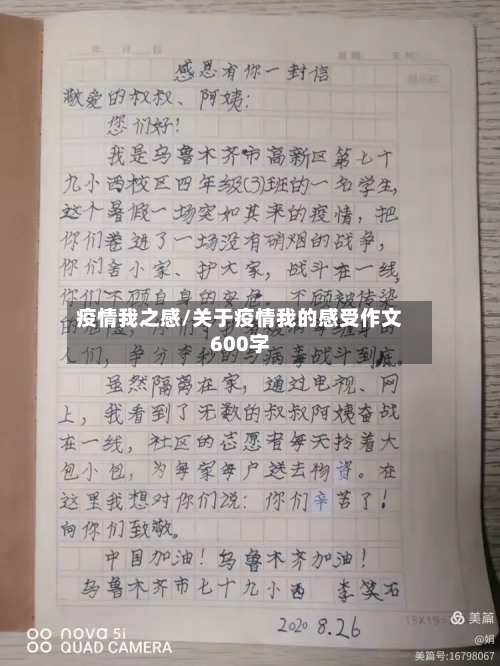 年 月 日
星期： 天气
感恩有你一封信
敬爱的叔叔、阿姨：
您们好！
我是乌鲁木齐市高新区第七十
九小西校区四年级(3)班的一名学生，
这个暑假一场突如其来的疫情，把
你们卷进了一场没有硝烟的战争，
你们舍小家、护大家，战斗在一线，
你们不顾自身的安危、不顾被传染
疫情我之感/关于疫情我的感受作文
600字
人们，争分夺秒的与病毒战斗到底。
虽然隔离在家，通过电视、网
上，我看到了无数的叔叔阿姨奋战
在一线，社区的志愿者每天拎着大
包小包，为每家每户送去物资。在
这里我想对你们说：你们辛苦了！
向你们致敬。
中国加油！乌鲁木齐加油！
乌鲁木齐市七十九小西 李笑石
2020 8.26
15X19=
美篇
@娟
美篇号:16798067
nova 5i
QUAD CAMERA